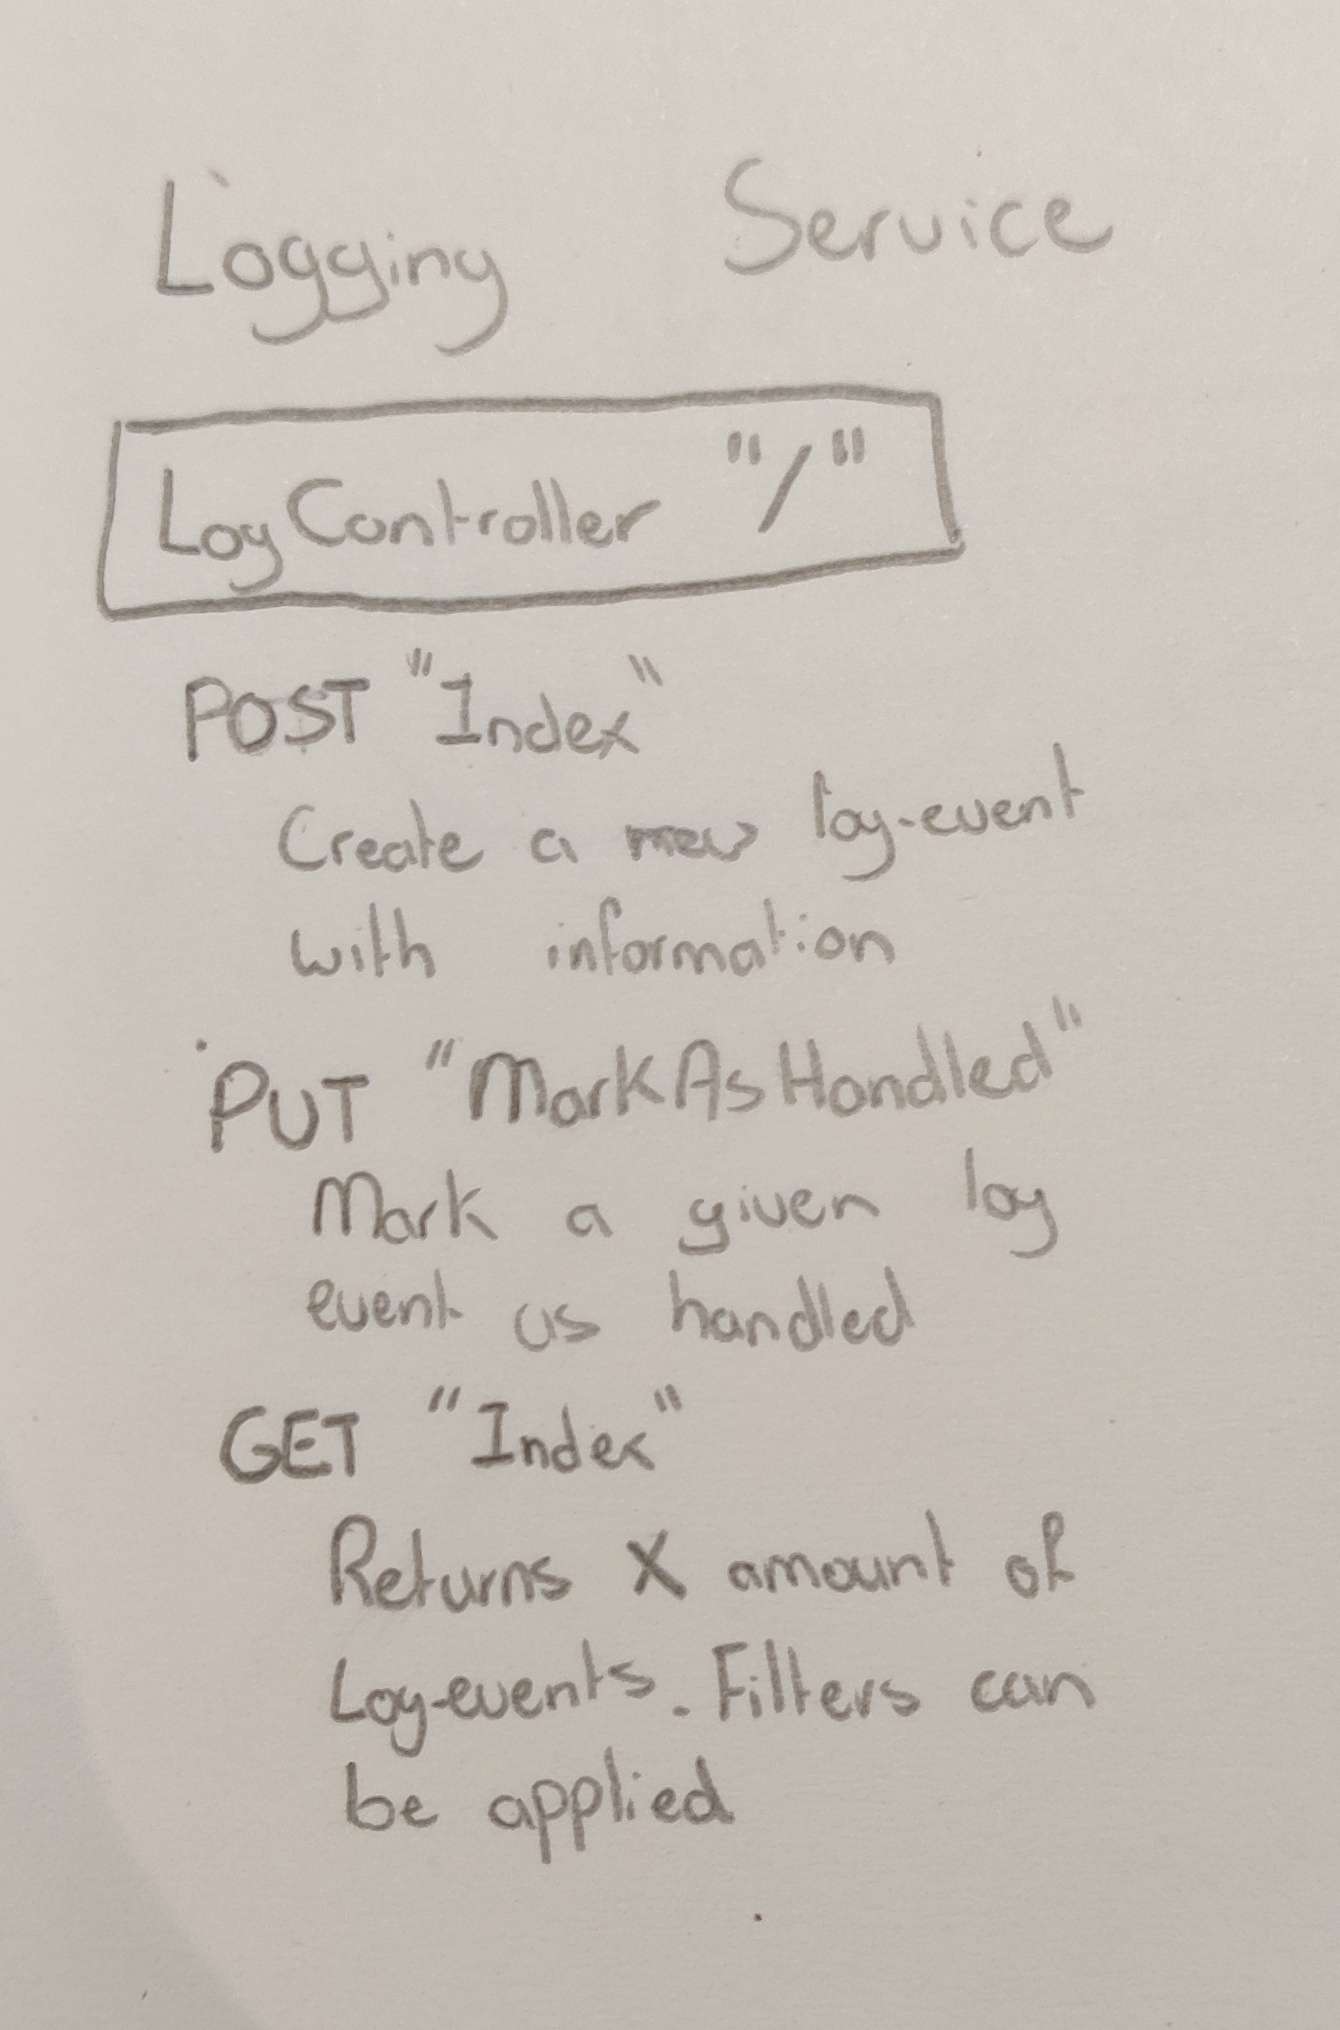 Logging Service
LogController "/"
POST "Index"
Create a new log-event
with information
PUT "MarkAsHandled"
Mark a given log
event as handled
GET "Index"
Returns X amount of
Log-events. Filters can
be applied